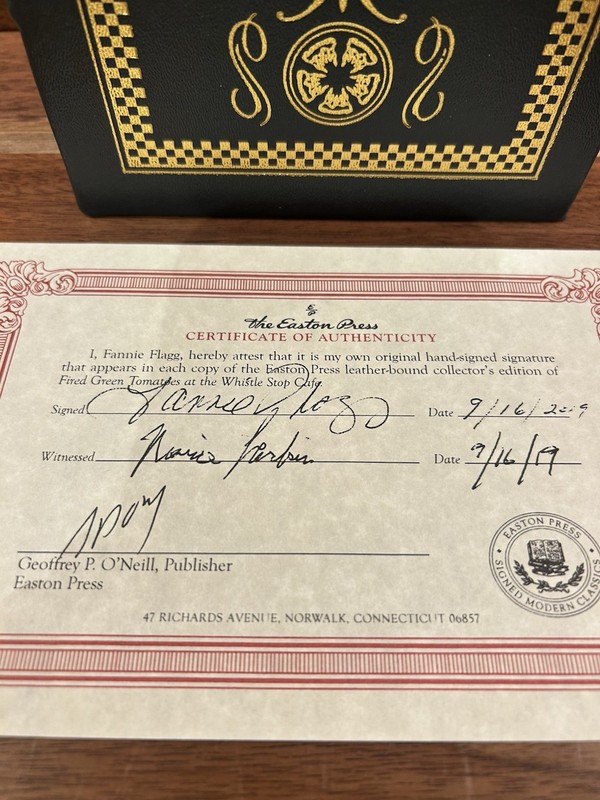 E
P
the Easton Press
CERTIFICATE OF AUTHENTICITY
I, Fannie Flagg, hereby attest that it is my own original hand-signed signature
that appears in each copy of the Easton Press leather-bound collector's edition of
Fired Green Tomatoes at the Whistle Stop Cafe.
Signed Fannie Flagg Date 9/16/2019
Witnessed Date 9/16/19
Geoffrey P. O'Neill, Publisher
Easton Press
EASTON PRESS
SIGNED MODERN CLASSICS
47 RICHARDS AVENUE, NORWALK, CONNECTICUT 06857